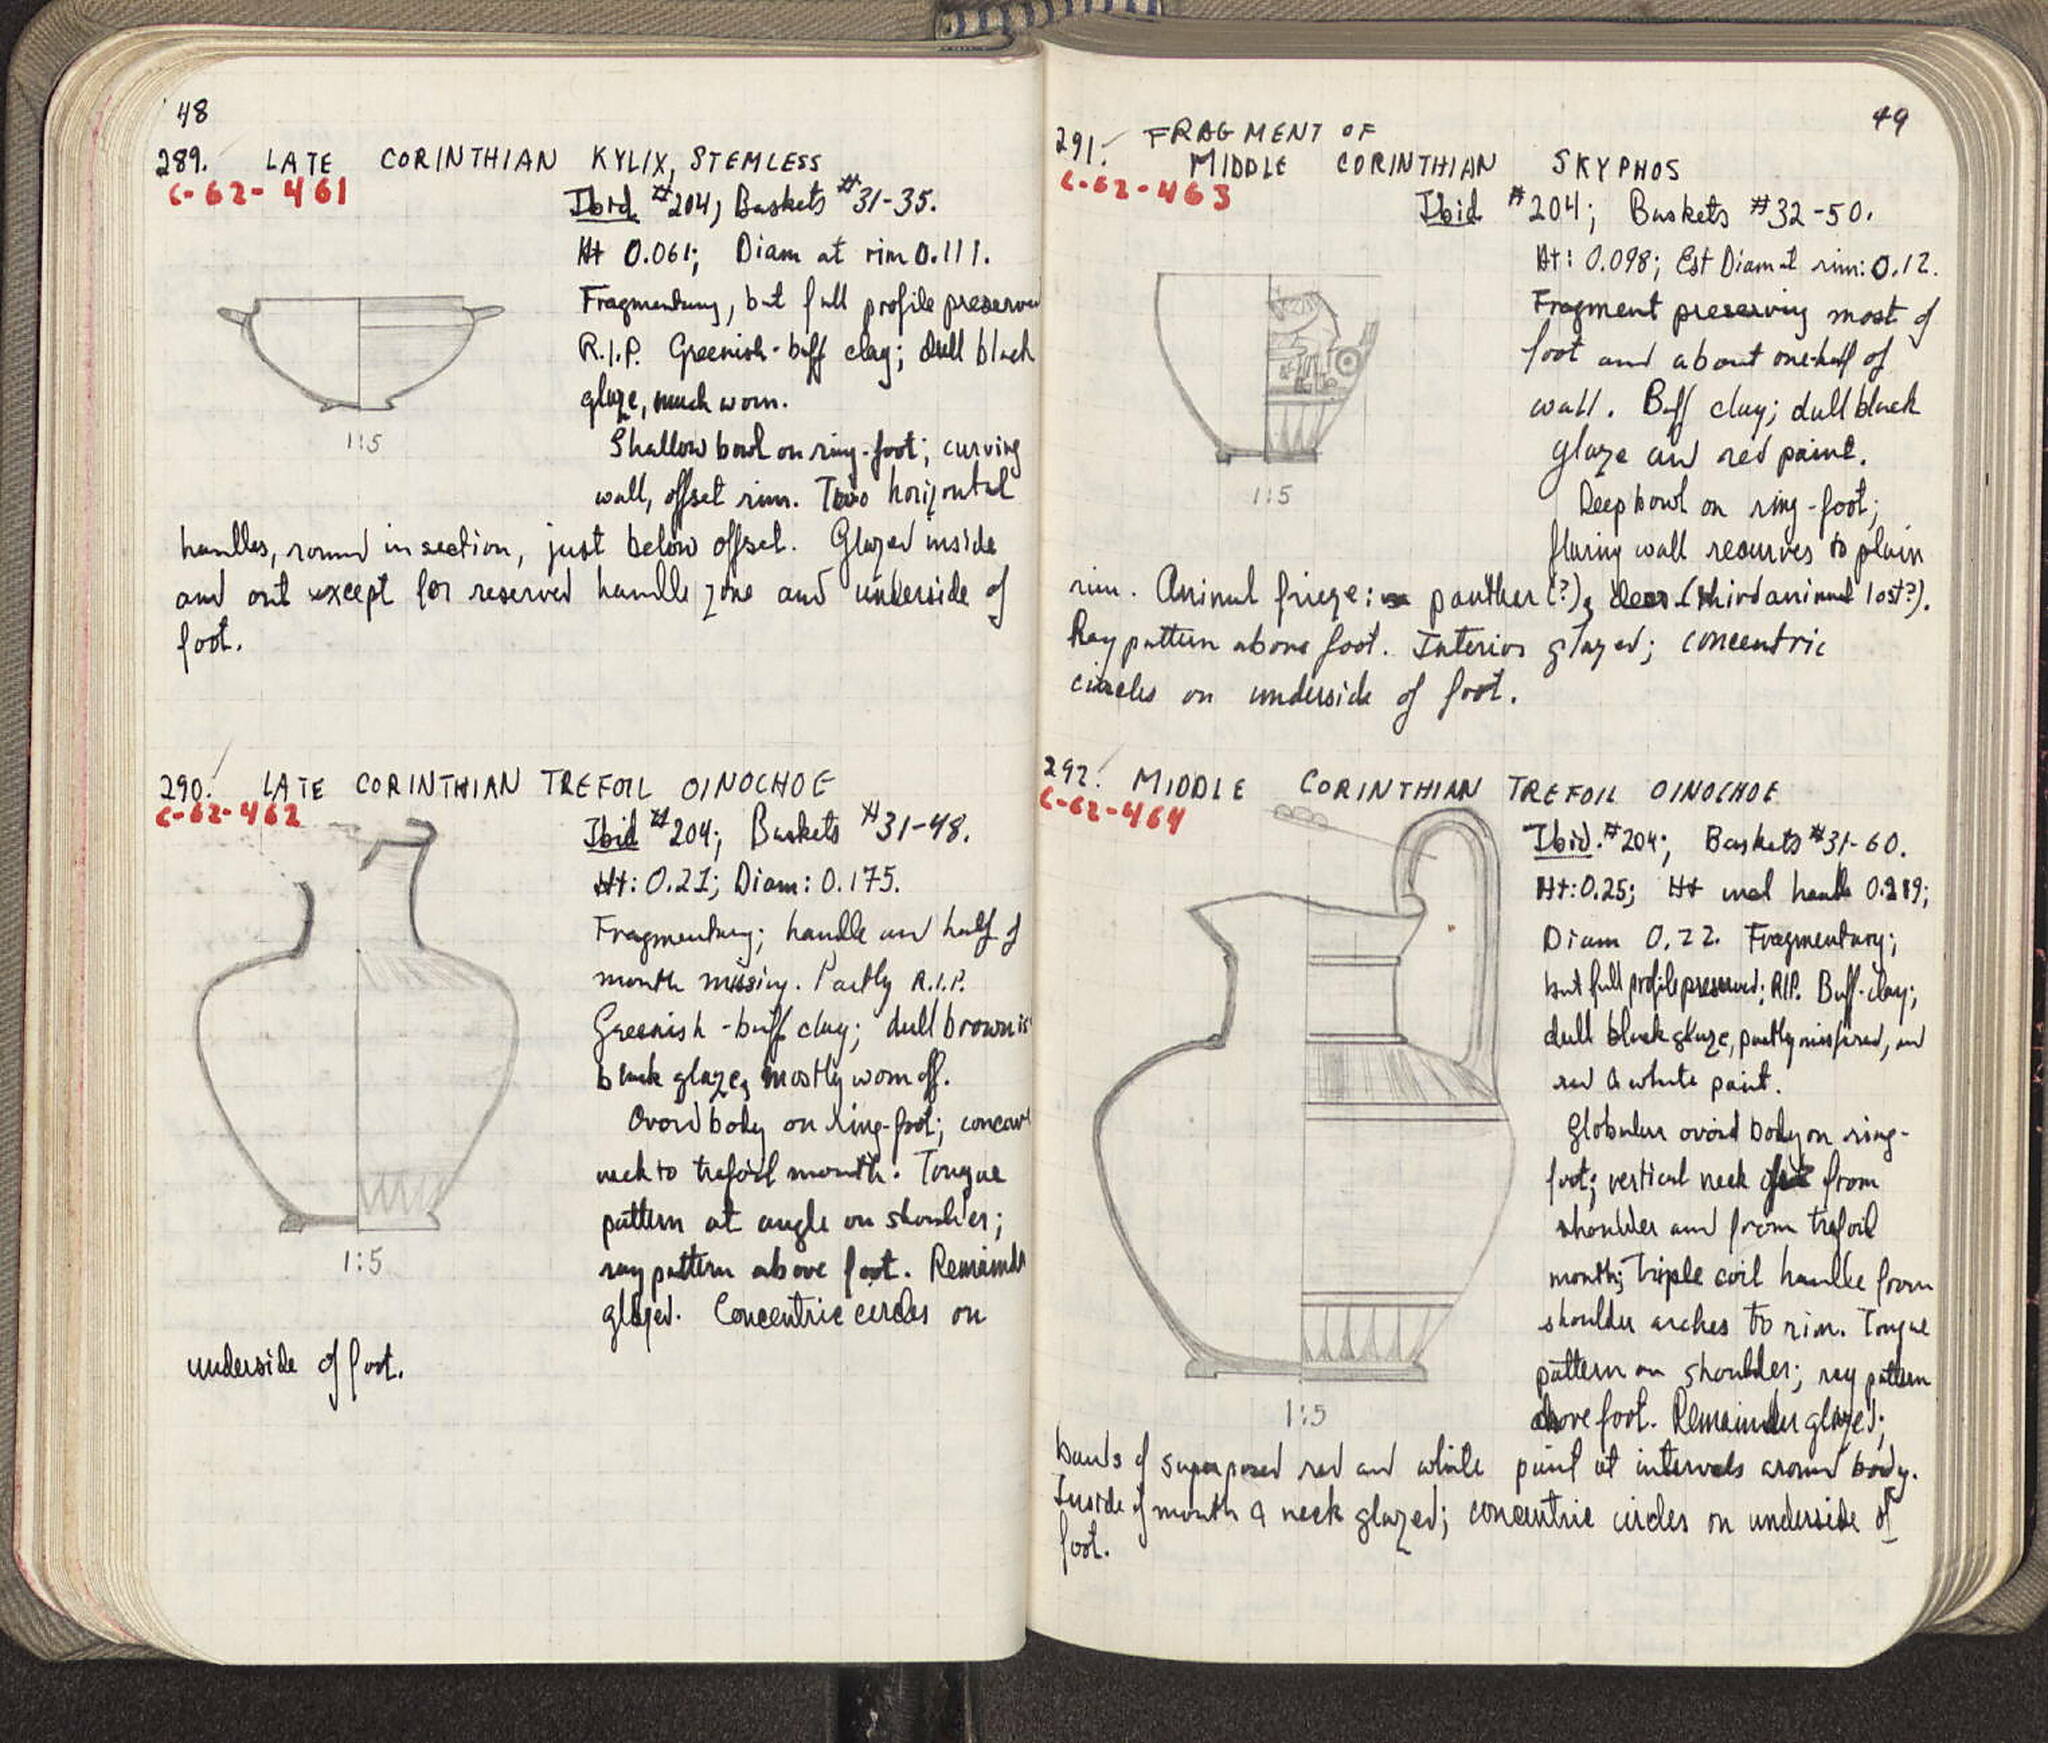 48
289. LATE CORINTHIAN KYLIX, STEMLESS
C-62-461
Ibid #204; Baskets #31-35.
Ht 0.061; Diam at rim 0.111.
Fragmentary, but full profile preserved
R.I.P. Greenish-buff clay; dull black
glaze, much worn.
Shallow bowl on ring-foot; curving
wall, offset rim. Two horizontal
handles, round in section, just below offset. Glazed inside
and out except for reserved handle zone and underside of
foot.
1:5
290. LATE CORINTHIAN TREFOIL OINOCHOE
C-62-462
Ibid #204; Baskets #31-48.
Ht: 0.21; Diam: 0.175.
Fragmentary; handle and half of
mouth missing. Partly R.I.P.
Greenish-buff clay; dull brownis
black glaze, mostly worn off.
Ovoid body on ring-foot; concave
neck to trefoil mouth. Tongue
pattern at angle on shoulder;
ray pattern above foot. Remainder
glazed. Concentric circles on
underside of foot.
1:5
49
291. FRAGMENT OF
MIDDLE CORINTHIAN SKYPHOS
C-62-463
Ibid #204; Baskets #32-50.
Ht: 0.098; Est Diam at rim: 0.12.
Fragment preserving most of
foot and about one-half of
wall. Buff clay; dull black
glaze and red paint.
Deep bowl on ring-foot;
flaring wall recurves to plain
rim. Animal frieze: panther (?), deer (third animal lost?).
Ray pattern above foot. Interior glazed; concentric
circles on underside of foot.
1:5
292. MIDDLE CORINTHIAN TREFOIL OINOCHOE
C-62-464
Ibid. #204; Baskets #31-60.
Ht: 0.25; Ht incl handle
Diam 0.22. Fragmentary;
but full profile preserved; RIP. Buff-clay;
dull black glaze, partly misfired, and
red & white paint.
Globular ovoid body on ring-
foot; vertical neck from
shoulder and from trefoil
mouth; triple coil handle from
shoulder arches to rim. Tongue
pattern on shoulder; ray pattern
above foot. Remainder glazed;
bands of superposed red and white paint at intervals around body.
Inside of mouth & neck glazed; concentric circles on underside of
foot.
1:5